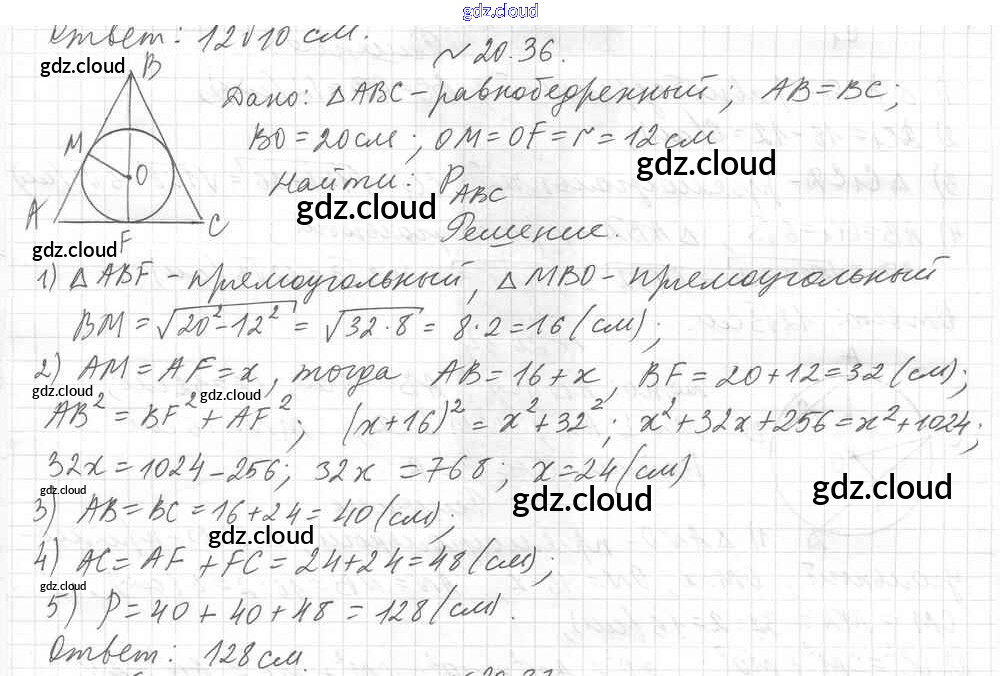 gdz.cloud
Ответ: 12 и 10 см.
№ 20.36.
gdz.cloud
B
Дано: △ABC - равнобедренный; AB = BC;
BO = 20 см; OM = OF = r = 12 см
M
O
gdz.cloud
Найти: P_ABC
gdz.cloud
A
C
F
Решение.
gdz.cloud
1) △ABF - прямоугольный, △MBO - прямоугольный
BM = √(20² - 12²) = √(32 · 8) = 8 · 2 = 16 (см);
2) AM = AF = x, тогда AB = 16 + x, BF = 20 + 12 = 32 (см);
gdz.cloud
gdz.cloud
AB² = BF² + AF²; (x + 16)² = x² + 32²; x² + 32x + 256 = x² + 1024;
32x = 1024 - 256; 32x = 768; x = 24 (см)
gdz.cloud
gdz.cloud
gdz.cloud
3) AB = BC = 16 + 24 = 40 (см);
gdz.cloud
4) AC = AF + FC = 24 + 24 = 48 (см);
gdz.cloud
5) P = 40 + 40 + 48 = 128 (см).
Ответ: 128 см.